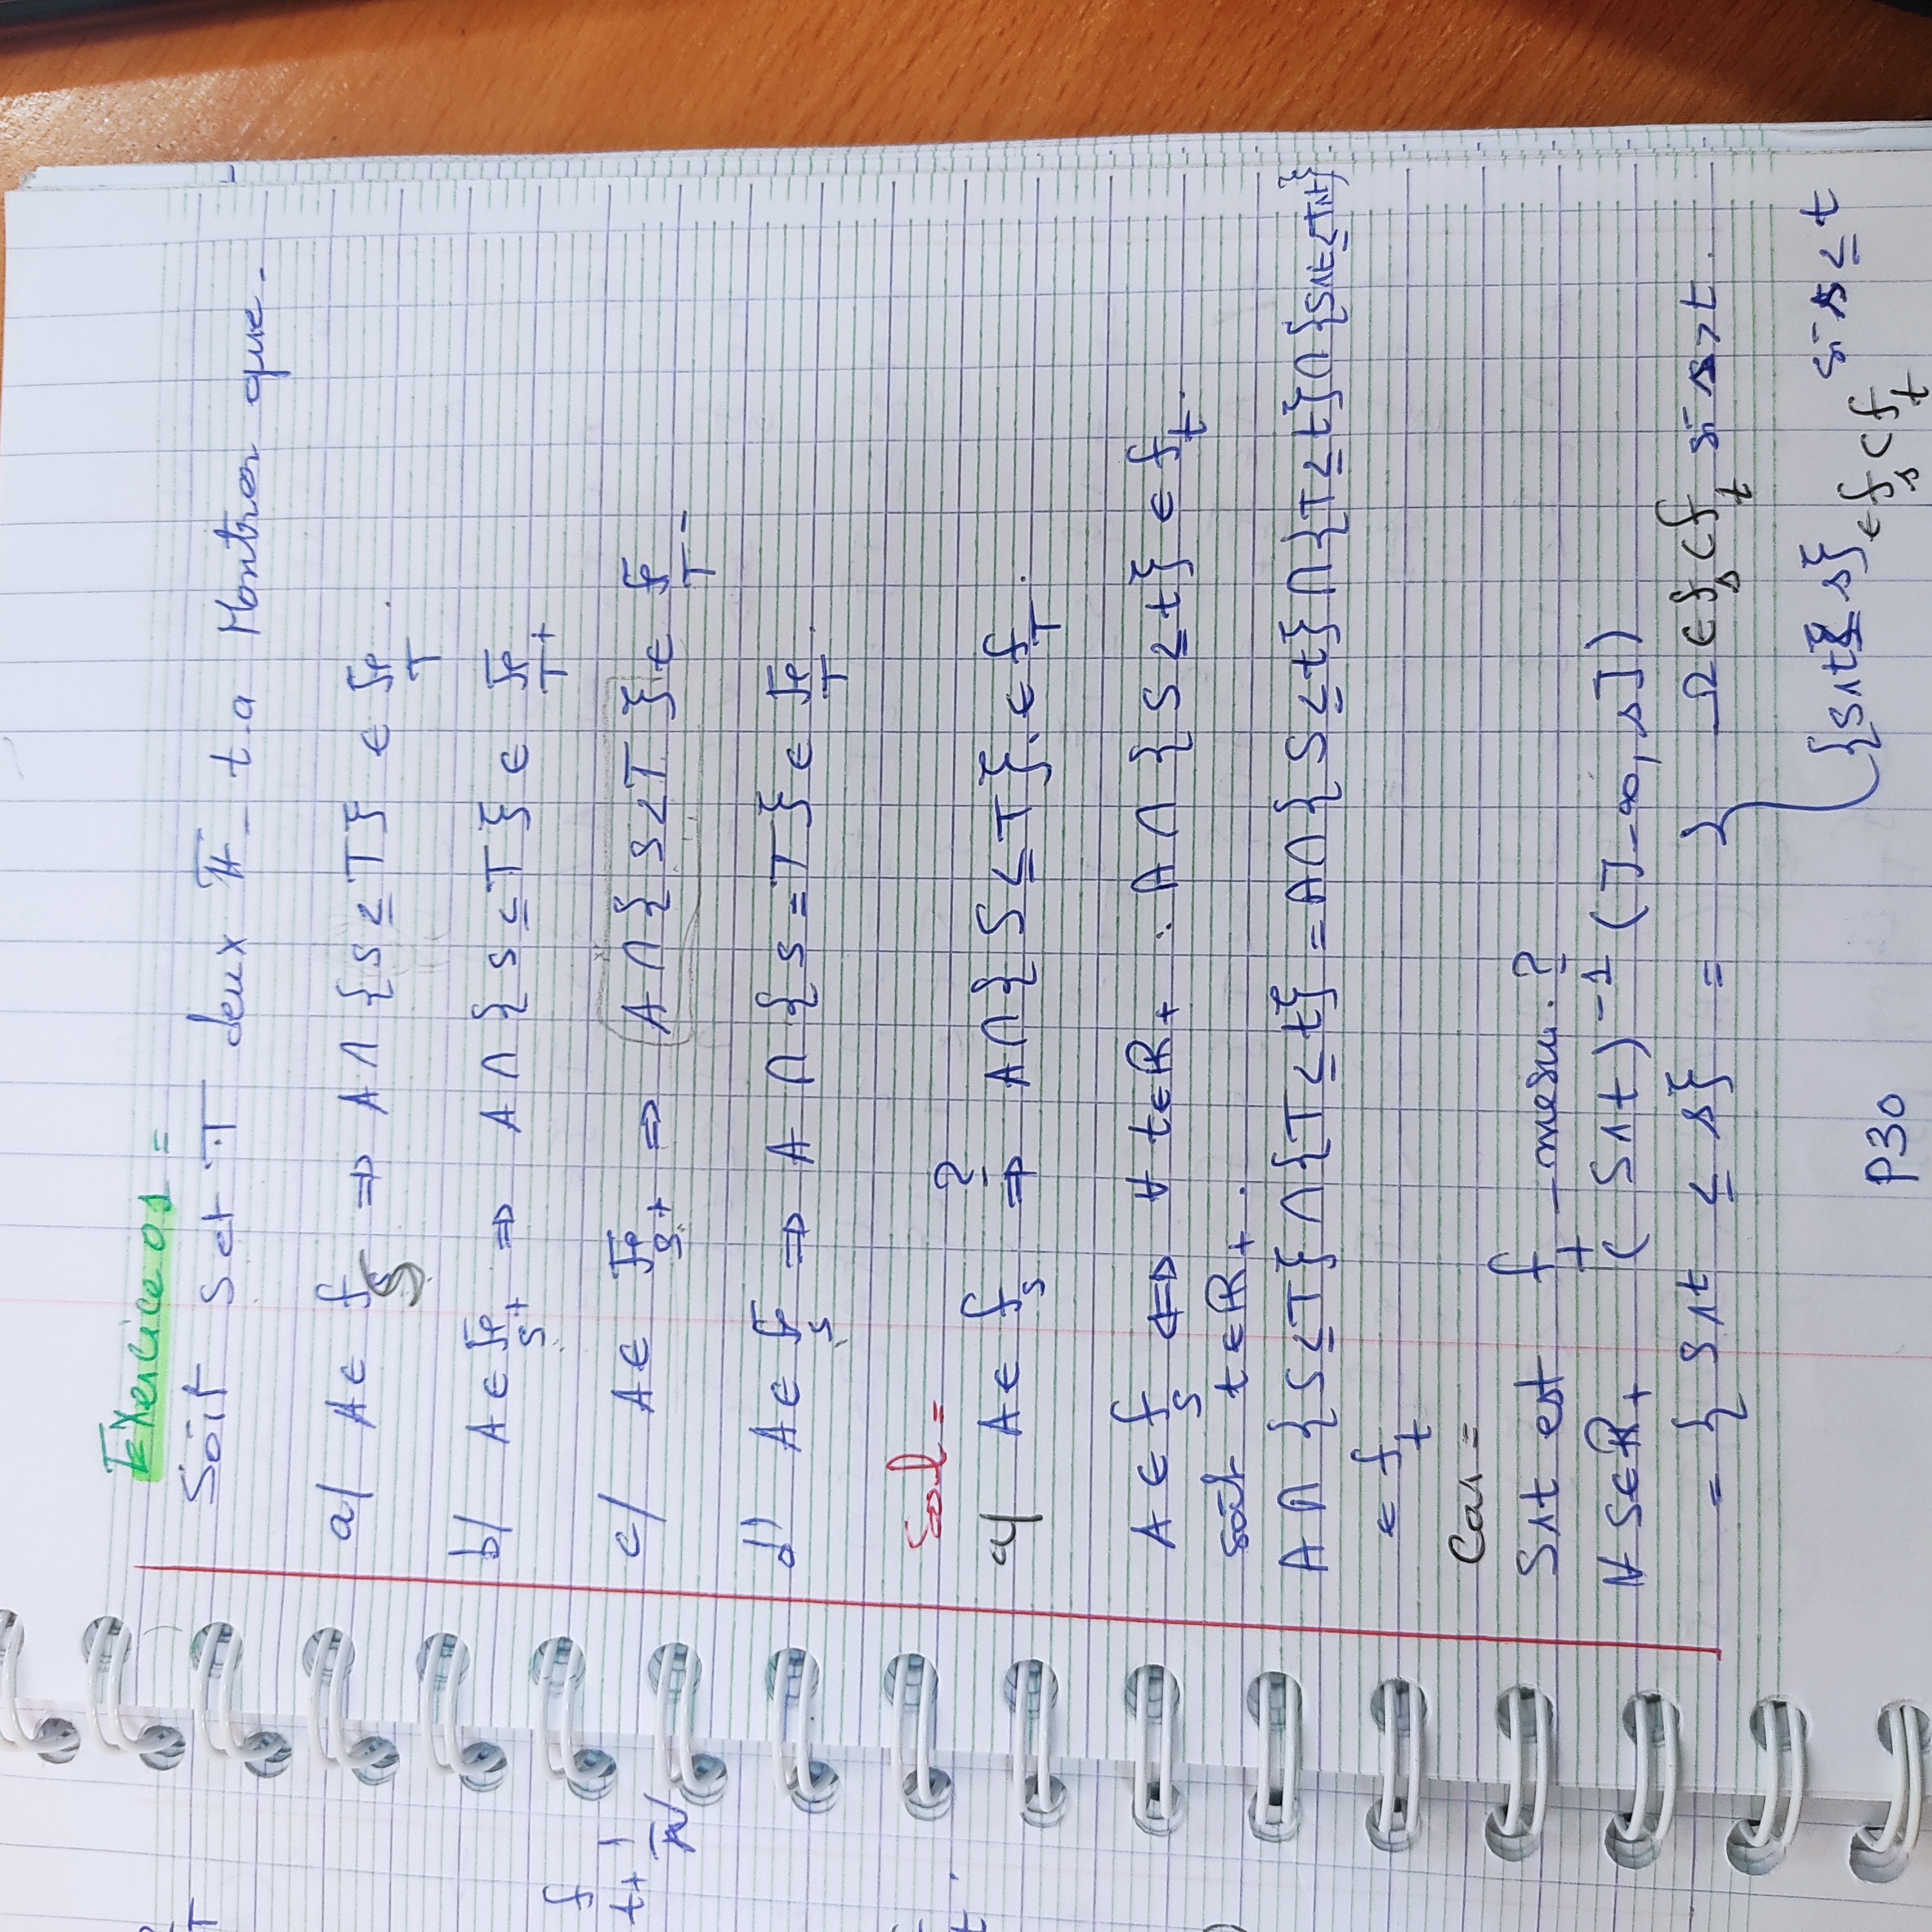 Exercice 01 =
Soit S et T deux F-t.a Montrer que-
a/ A ∈ f_S ⇒ A ∩ {S ≤ T} ∈ F_T.
b/ A ∈ F_S+ ⇒ A ∩ {S ≤ T} ∈ F_T+
c/ A ∈ F_S+ ⇒ A ∩ {S < T} ∈ F_T-
d/ A ∈ F_S ⇒ A ∩ {S = T} ∈ F_T.
Sol =
a/ A ∈ f_S ?⇒ A ∩ {S ≤ T} ∈ f_T.
A ∈ f_S ⇔ ∀ t ∈ R+ : A ∩ {S ≤ t} ∈ f_t.
soit t ∈ R+.
A ∩ {S ≤ T} ∩ {T ≤ t} = A ∩ {S ≤ t} ∩ {T ≤ t} ∩ {S∧t ≤ T∧t}
∈ f_t
Car =
S∧t est f_t - mesu. ?
∀ s ∈ R+ (S∧t)^-1 (]-∞, s])
= {S∧t ≤ s} = { Ω ∈ f_s ⊂ f_t si s > t.
{S∧t ≤ s} ∈ f_s ⊂ f_t si s ≤ t
P30
f
t+ 1/n
T
t.